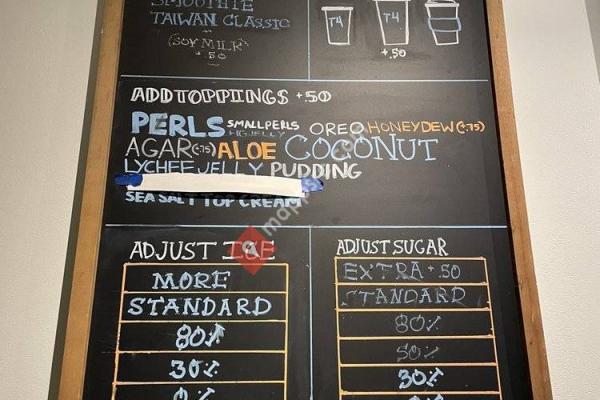 SMOOTHIE
TAIWAN CLASSIC
(SOY MILK
+.50
T4
T4
+.50
ADD TOPPINGS +.50
PERLS SMALL PERLS OREO HONEYDEW(+.75)
AGAR(+.75) ALOE COCONUT
LYCHEE JELLY PUDDING
SEA SALT TOP CREAM
ADJUST ICE
MORE
STANDARD
80%
30%
0%
ADJUST SUGAR
EXTRA +.50
STANDARD
80%
50%
30%